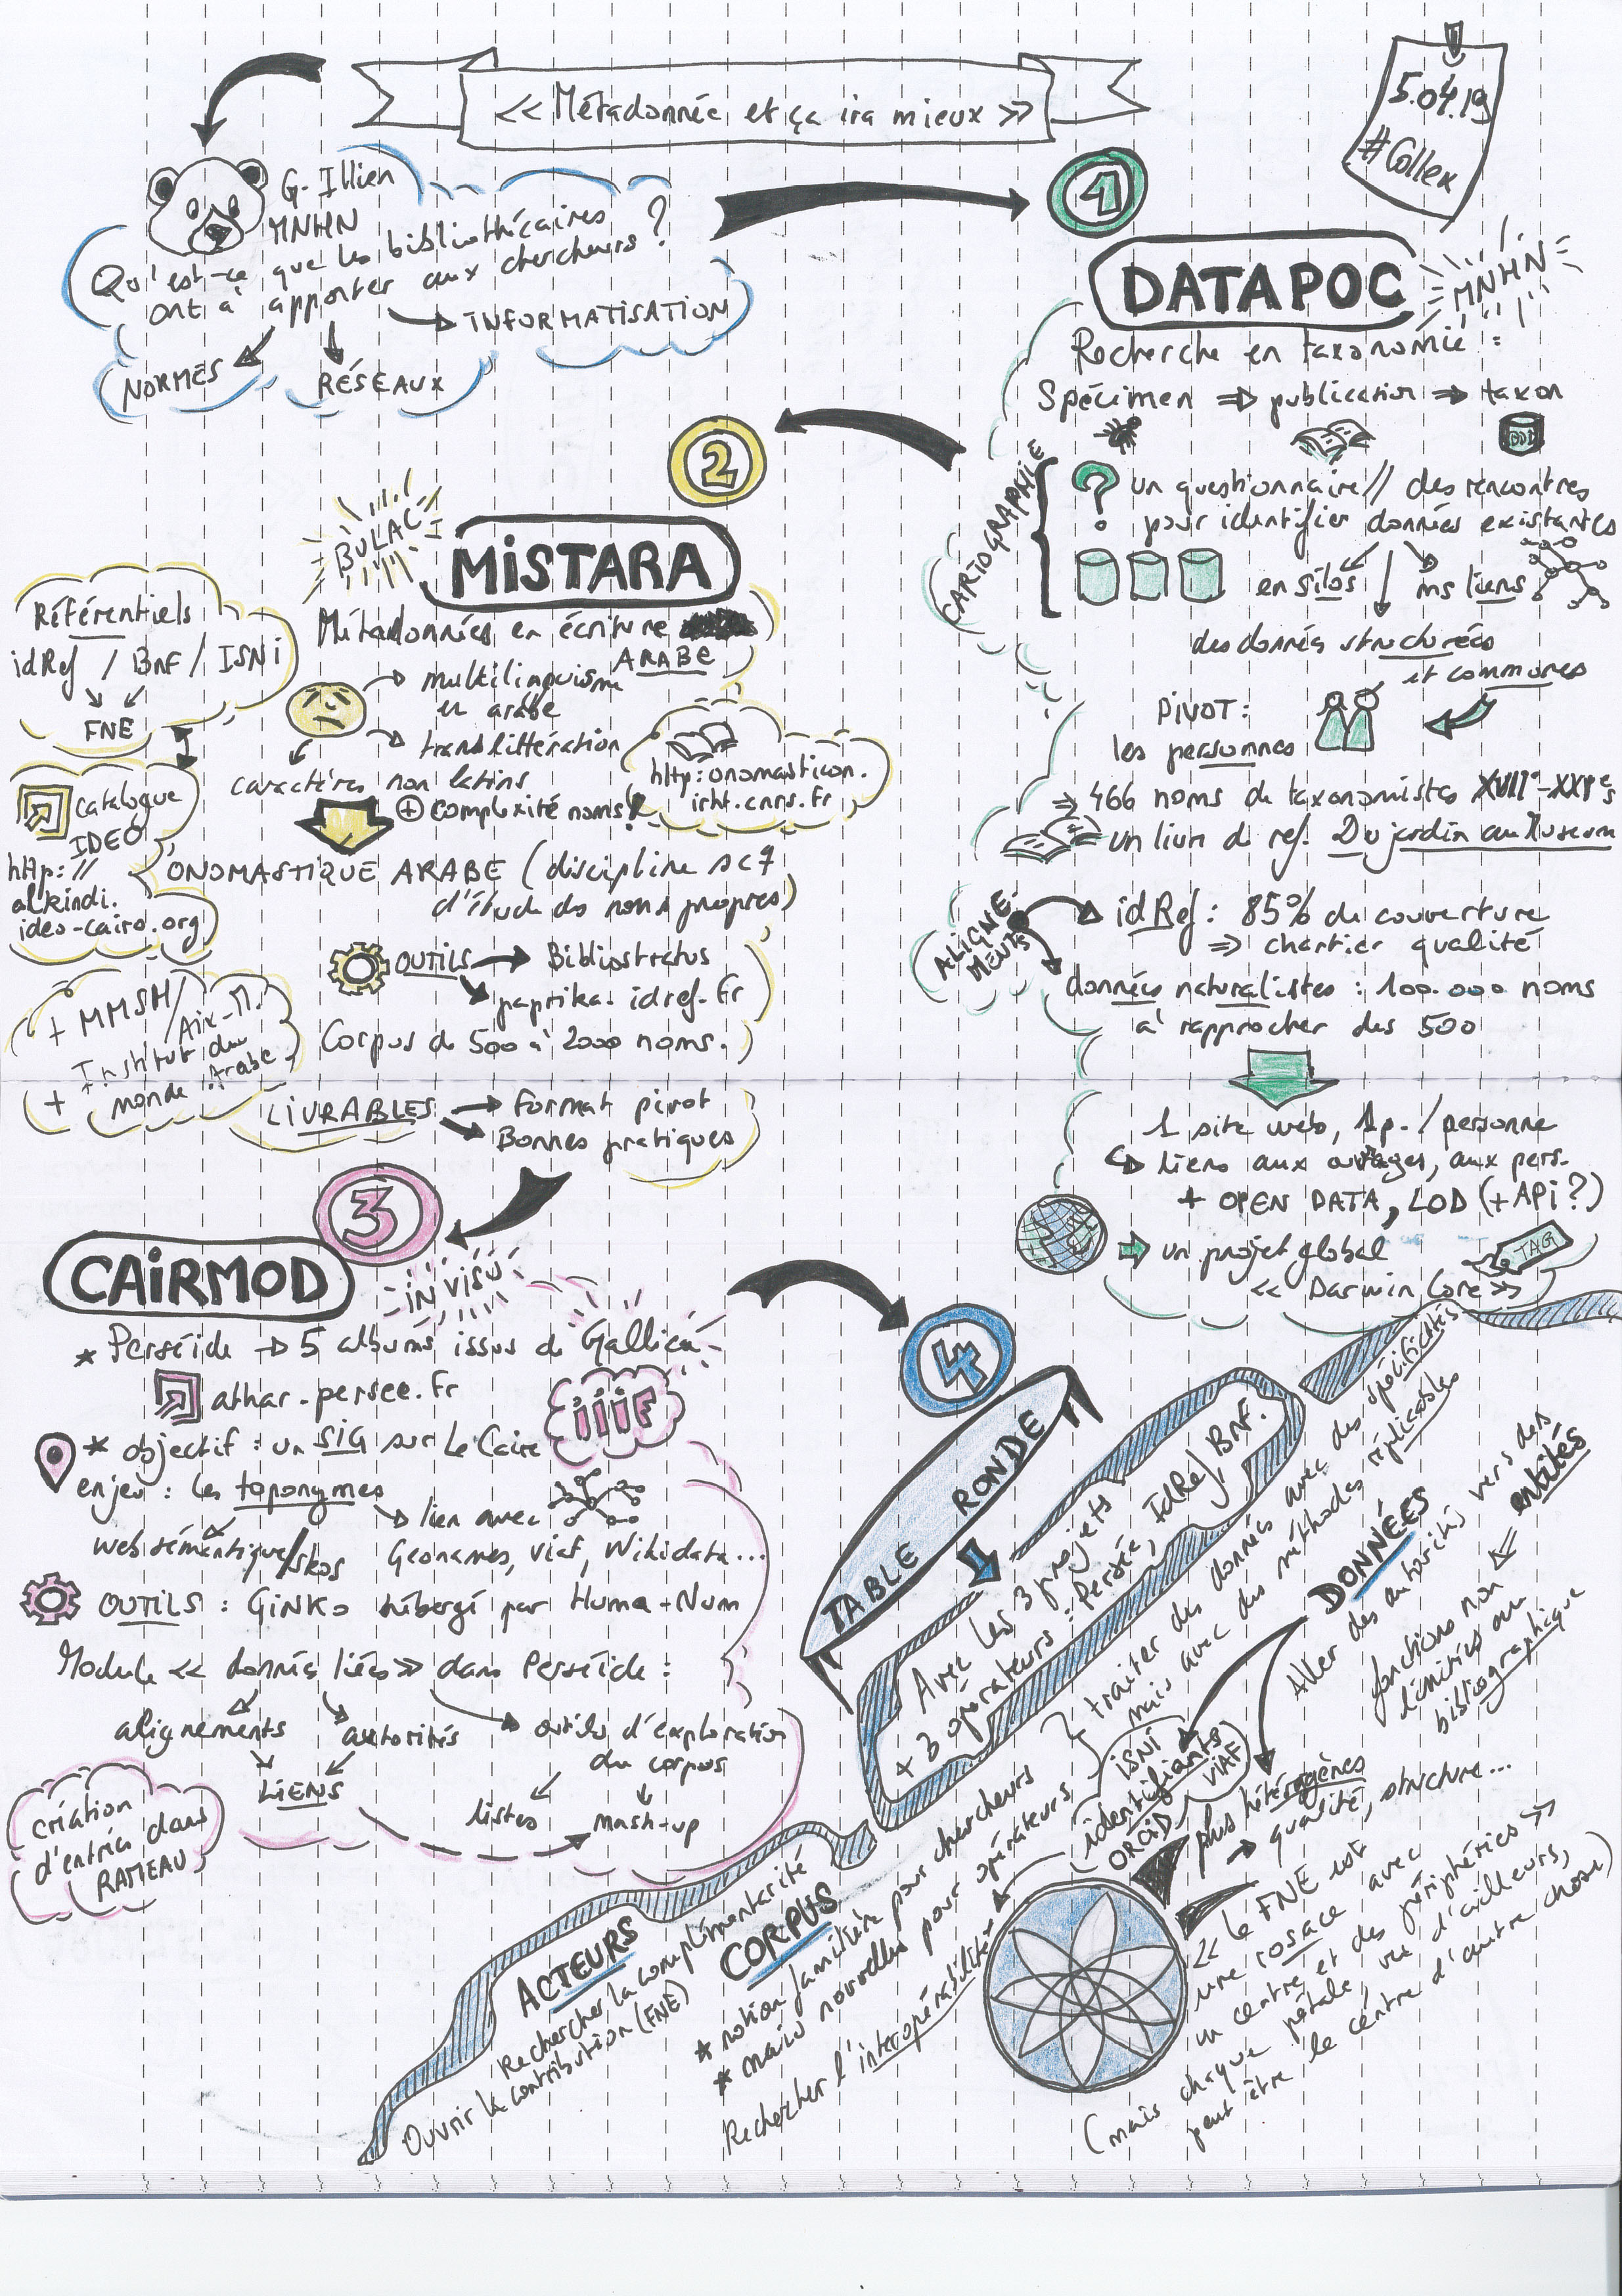 << Métadonnée et ça ira mieux >>
5.04.19
#Collex
G. Illien
MNHN
Qu'est-ce que les bibliothécaires
ont à apporter aux chercheurs ?
INFORMATISATION
NORMES
RÉSEAUX
1
DATAPOC
MNHN
Recherche en taxonomie :
Spécimen ⇒ publication ⇒ taxon
BDD
CARTOGRAPHIE
? un questionnaire // des rencontres
pour identifier données existantes
en silos
ms liens
des données structurées
et communes
PIVOT :
les personnes
⇒ 466 noms de taxonomistes XVIIe-XXIes
un livre de ref. Du jardin au Museum
ALIGNE-
MENTS
idRef : 85% de couverture
⇒ chantier qualité
données naturalistes : 100.000 noms
à rapprocher des 500
1 site web, 1p. / personne
liens aux ouvrages, aux pers.
+ OPEN DATA, LOD (+ APi ?)
un projet global
TAG
<< Darwin Core >>
2
BULAC
MiSTARA
Métadonnées en écriture
ARABE
multilinguisme
en arabe
translittération
caractères non latins
+ complexité noms !
http:onomasticon.
irht.cnrs.fr
Référentiels
idRef / BnF / ISNi
FNE
catalogue
IDEO
http://
alkindi.
ideo-cairo.org
ONOMASTIQUE ARABE (discipline sc
d'étude des noms propres)
OUTILS → Bibliostratus
paprika.idref.fr
Corpus de 500 à 2000 noms.
+ MMSH/
Aix-M.
+ Institut du
monde Arabe
LIVRABLES → Format pivot
Bonnes pratiques
3
CAiRMOD
iNViSU
* Perséide → 5 albums issus de Gallica
athar.persee.fr
iiiF
* objectif : un SIG sur Le Caire
enjeu : les toponymes
web sémantique/skos
lien avec
Geonames, viaf, Wikidata...
OUTILS : GiNKo hébergé par Huma-Num
Module << données liées >> dans Perséide :
alignements
autorités
outils d'exploration
du corpus
LiENS
listes
mash-up
création
d'entrées dans
RAMEAU
4
TABLE RONDE
Avec les 3 projets
+ 3 opérateurs : Persée, IdRef, BnF.
traiter des données avec des spécificités
mais avec des méthodes réplicables
ACTEURS
Rechercher la complémentarité
Ouvrir la contribution (FNE)
CORPUS
* notion familière pour chercheurs
* mais nouvelle pour opérateurs
Rechercher l'interopérabilité
DONNÉES
Aller des autorités vers des
entités
fonctions non
limitées au
bibliographique
iSNi
identifiants
ORCiD
ViAF
plus hétérogènes
→ qualité, structure...
<< Le FNE est
une rosace avec
un centre et des périphéries >>
(mais chaque pétale, vu d'ailleurs,
peut être le centre d'autre chose)